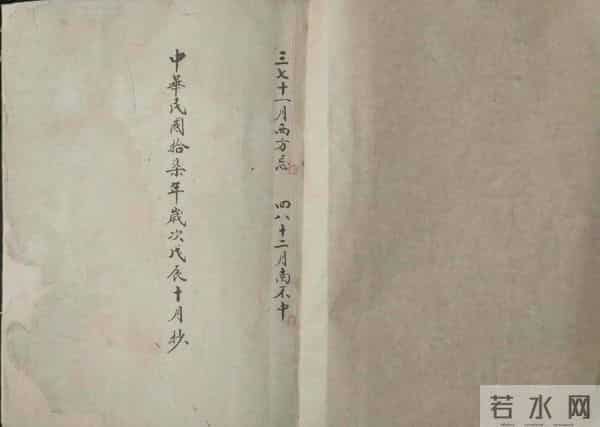 三七十一月西方忌 四八十二月南不中
中華民國拾柒年歲次戊辰十月抄
若水网